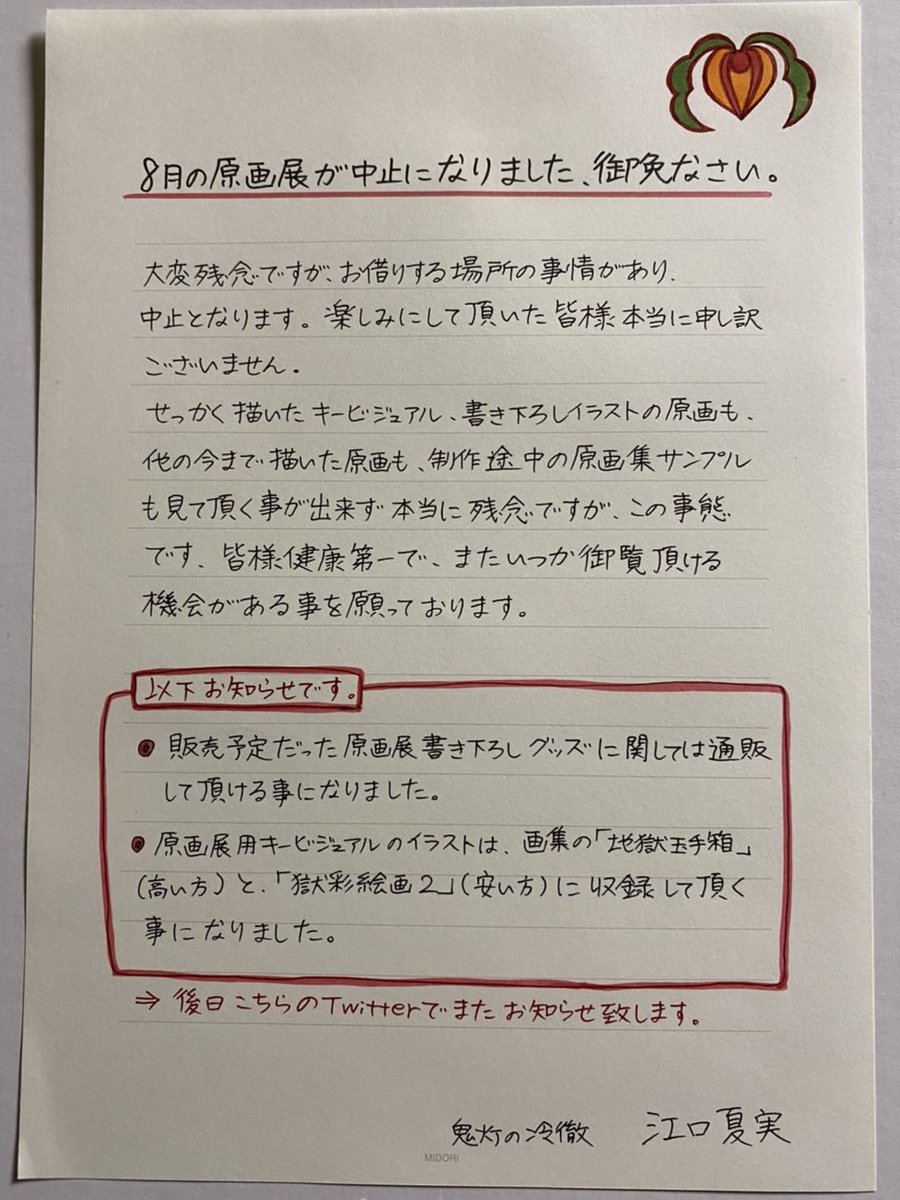 8月の原画展が中止になりました、御免なさい。
大変残念ですが、お借りする場所の事情があり、
中止となります。楽しみにして頂いた皆様本当に申し訳
ございません。
せっかく描いたキービジュアル、書き下ろしイラストの原画も、
他の今まで描いた原画も、制作途中の原画集サンプル
も見て頂く事が出来ず本当に残念ですが、この事態
です、皆様健康第一で、またいつか御覧頂ける
機会がある事を願っております。
以下お知らせです。
● 販売予定だった原画展書き下ろしグッズに関しては通販
して頂ける事になりました。
● 原画展用キービジュアルのイラストは、画集の「地獄玉手箱」
(高い方)と、「獄彩絵画2」(安い方)に収録して頂く
事になりました。
⇒ 後日こちらのTwitterでまたお知らせ致します。
鬼灯の冷徹 江口夏実
MIDORI